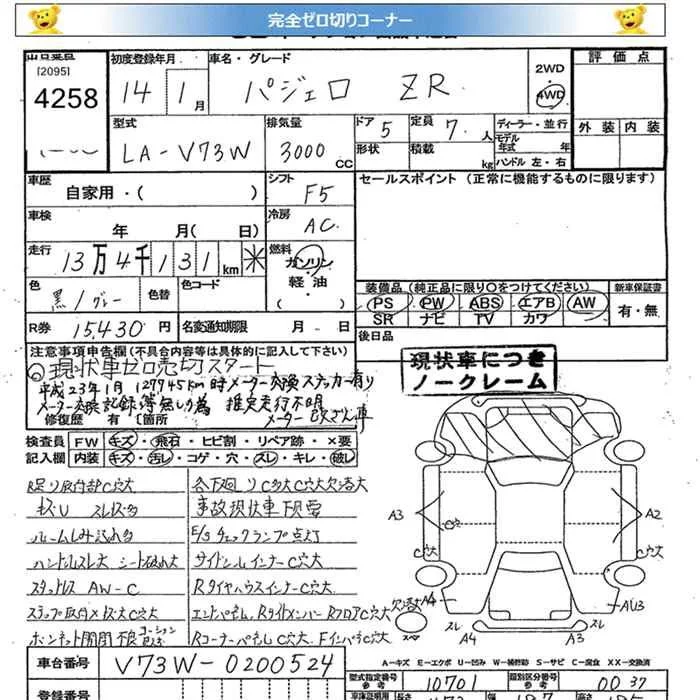 完全ゼロ切りコーナー
[2095]
4258
初度登録年月 車名・グレード
14 1月 パジェロ ZR
2WD
4WD
評価点
外装 内装
型式 排気量 ドア 5 定員 7人 ディーラー・並行
LA-V73W 3000CC 形状 積載 kg モデル年式 年
ハンドル左・右
車歴 シフト セールスポイント(正常に機能するものに限ります)
自家用・( ) F5
車検 年 月( 日) 冷房 AC
走行 13万4千131km ※ 燃料 ガソリン
軽油
( )
色 黒/グレー 色替 色コード
装備品(純正品に限り○をつけてください) 新車保証書
PS PW ABS エアB AW 有・無
SR ナビ TV カワ
R券 15,430円 名変通知期限 月 日 後日品
注意事項申告欄(不具合内容等は具体的に記入して下さい)
現状車ゼロ売切スタート
現状車につき
ノークレーム
平成23年1月 127945km時メーター交換ステッカー有り
メーター交換記録等無しの為 推定走行不明
修復歴 有 〔箇所 メーター改ざん車
検査員 FW キズ・飛石・ヒビ割・リペア跡・×要
記入欄 内装 キズ・汚レ・コゲ・穴・スレ・キレ・破レ
各下廻りC多大C穴大欠落大
スレ状多 事故現状車下見要
ルームしみ汚れ多 E/gチェックランプ点灯
ハンドルスレ大 シート破れ大 サイドシルインナーC穴大
スタットレス AW-C RタイヤハウスインナーC穴大
ステップ取付×状大C穴大
ボンネット開閉不良 RコーナーパネルC穴大
A3 A2
C穴大 C穴大
欠落大 A4 AU3
スレ A4 A3 スレ
A-キズ E-エクボ U-凹み W-補修跡 S-サビ C-腐食 XX-交換済
車台番号 V73W-0200524
型式指定番号 10701 類別区分番号 0037
参考 参考
登録番号